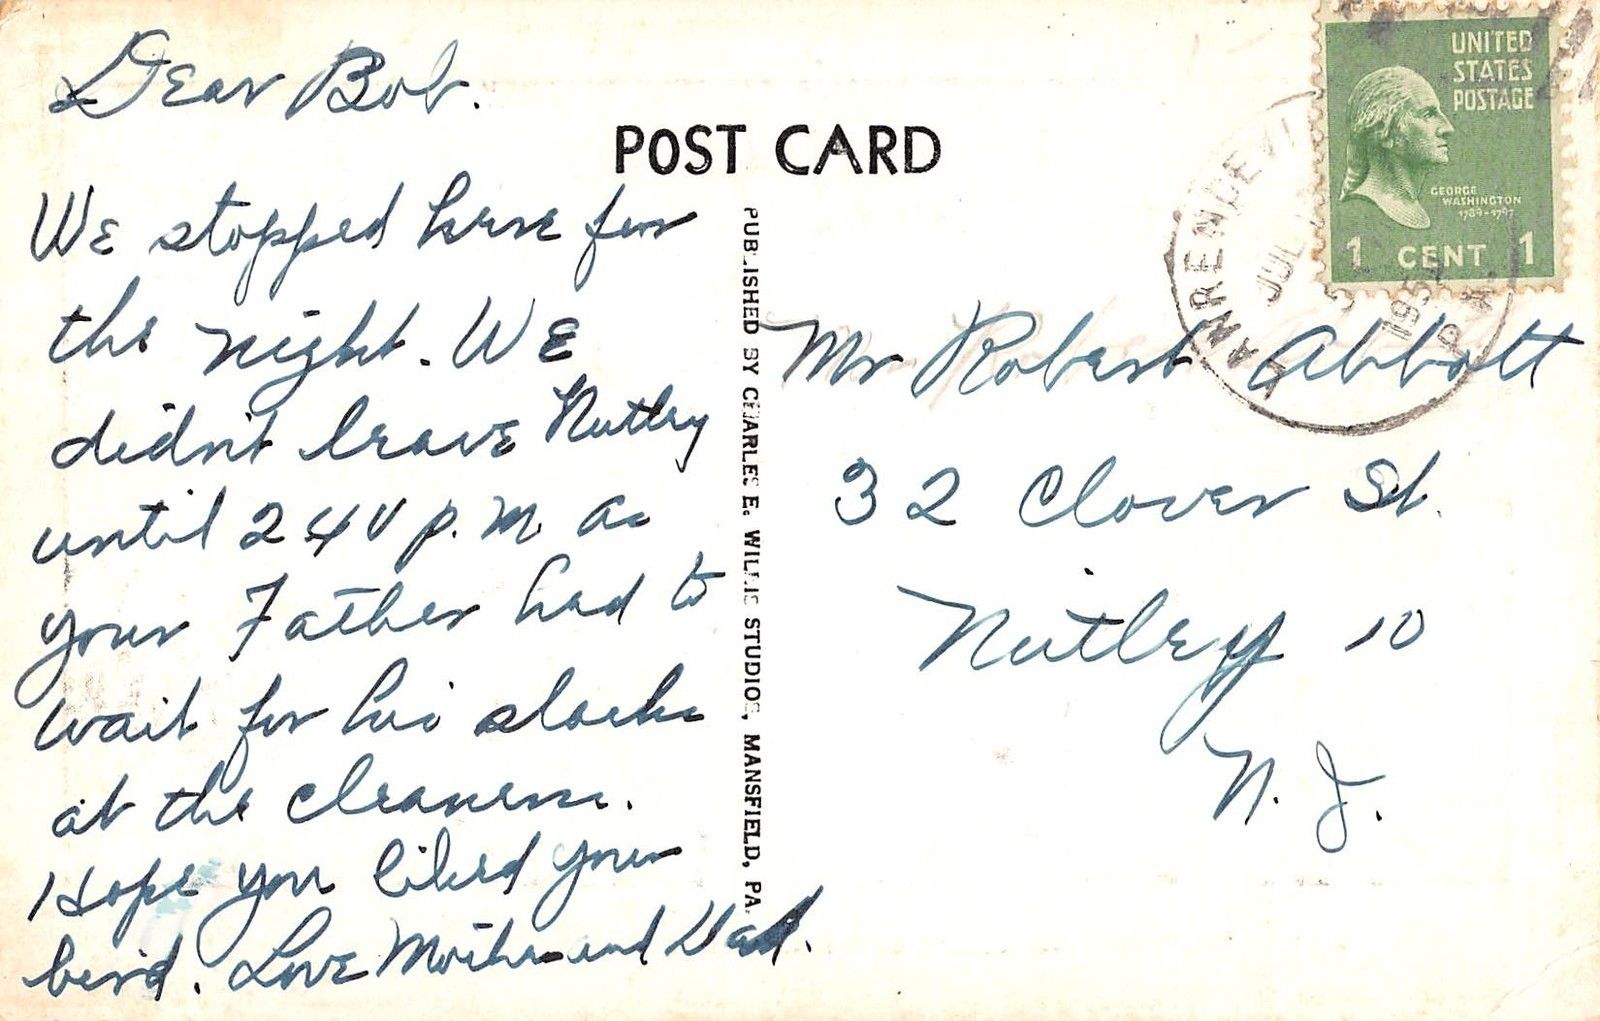 Dear Bob.
We stopped here for
the night. We
didn't leave Nutley
until 2 40 p.m. as
your Father had to
wait for his slacks
at the cleaners.
Hope you liked your
bird. Love Mother and Dad.
POST CARD
PUBLISHED BY CHARLES E. WILLIS STUDIOS, MANSFIELD, PA.
UNITED
STATES
POSTAGE
GEORGE
WASHINGTON
1789-1797
1 CENT 1
JUL
5
P M
Mr Robert Abbott
32 Clover St.
Nutley 10
N. J.